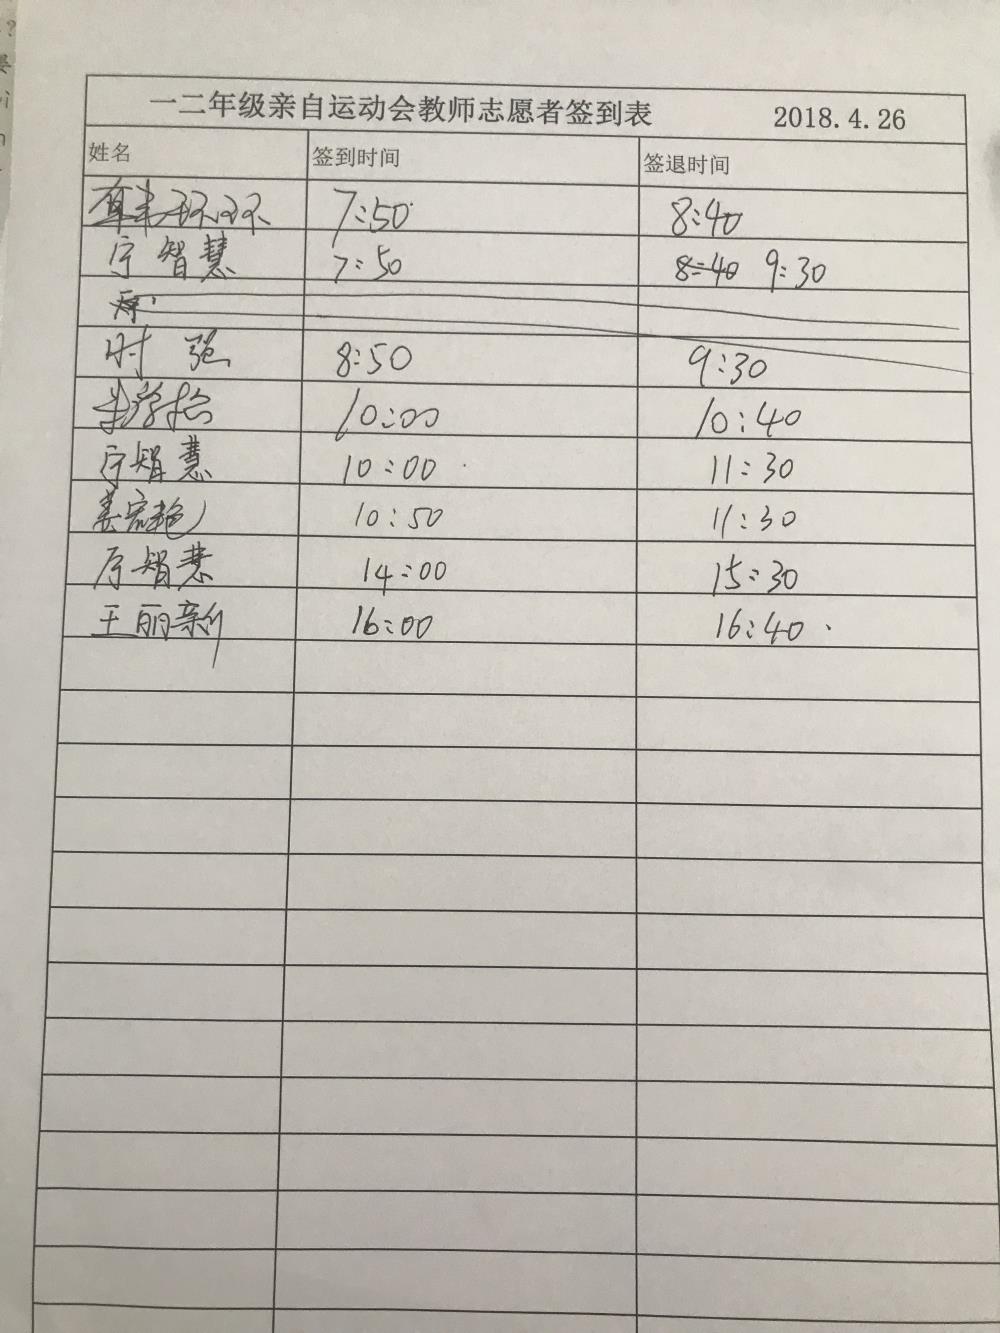 一二年级亲自运动会教师志愿者签到表 2018.4.26
姓名 签到时间 签退时间
7:50 8:40
宁智慧 7:50 8:40 9:30
时强 8:50 9:30
10:00 10:40
宁智慧 10:00 11:30
姜宏艳 10:50 11:30
宁智慧 14:00 15:30
王丽新 16:00 16:40